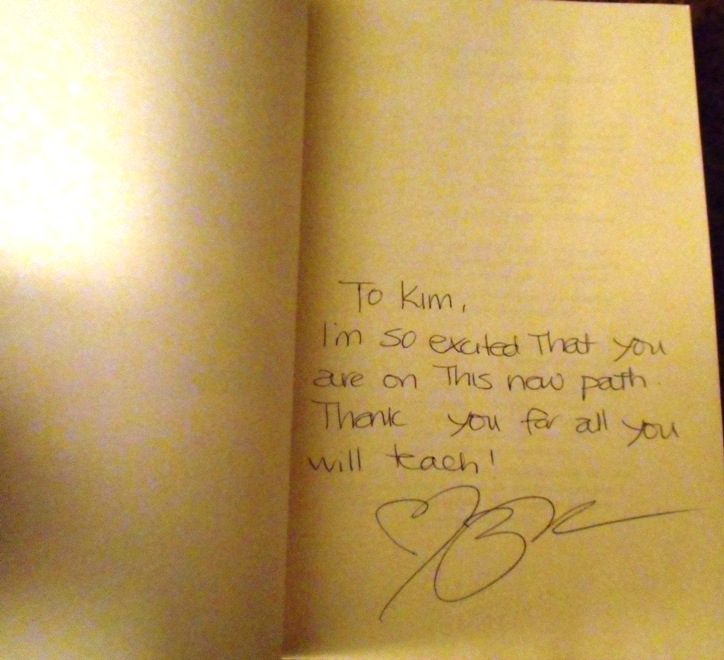 To Kim,
I'm so excited That you
are on This new path.
Thank you for all you
will teach!